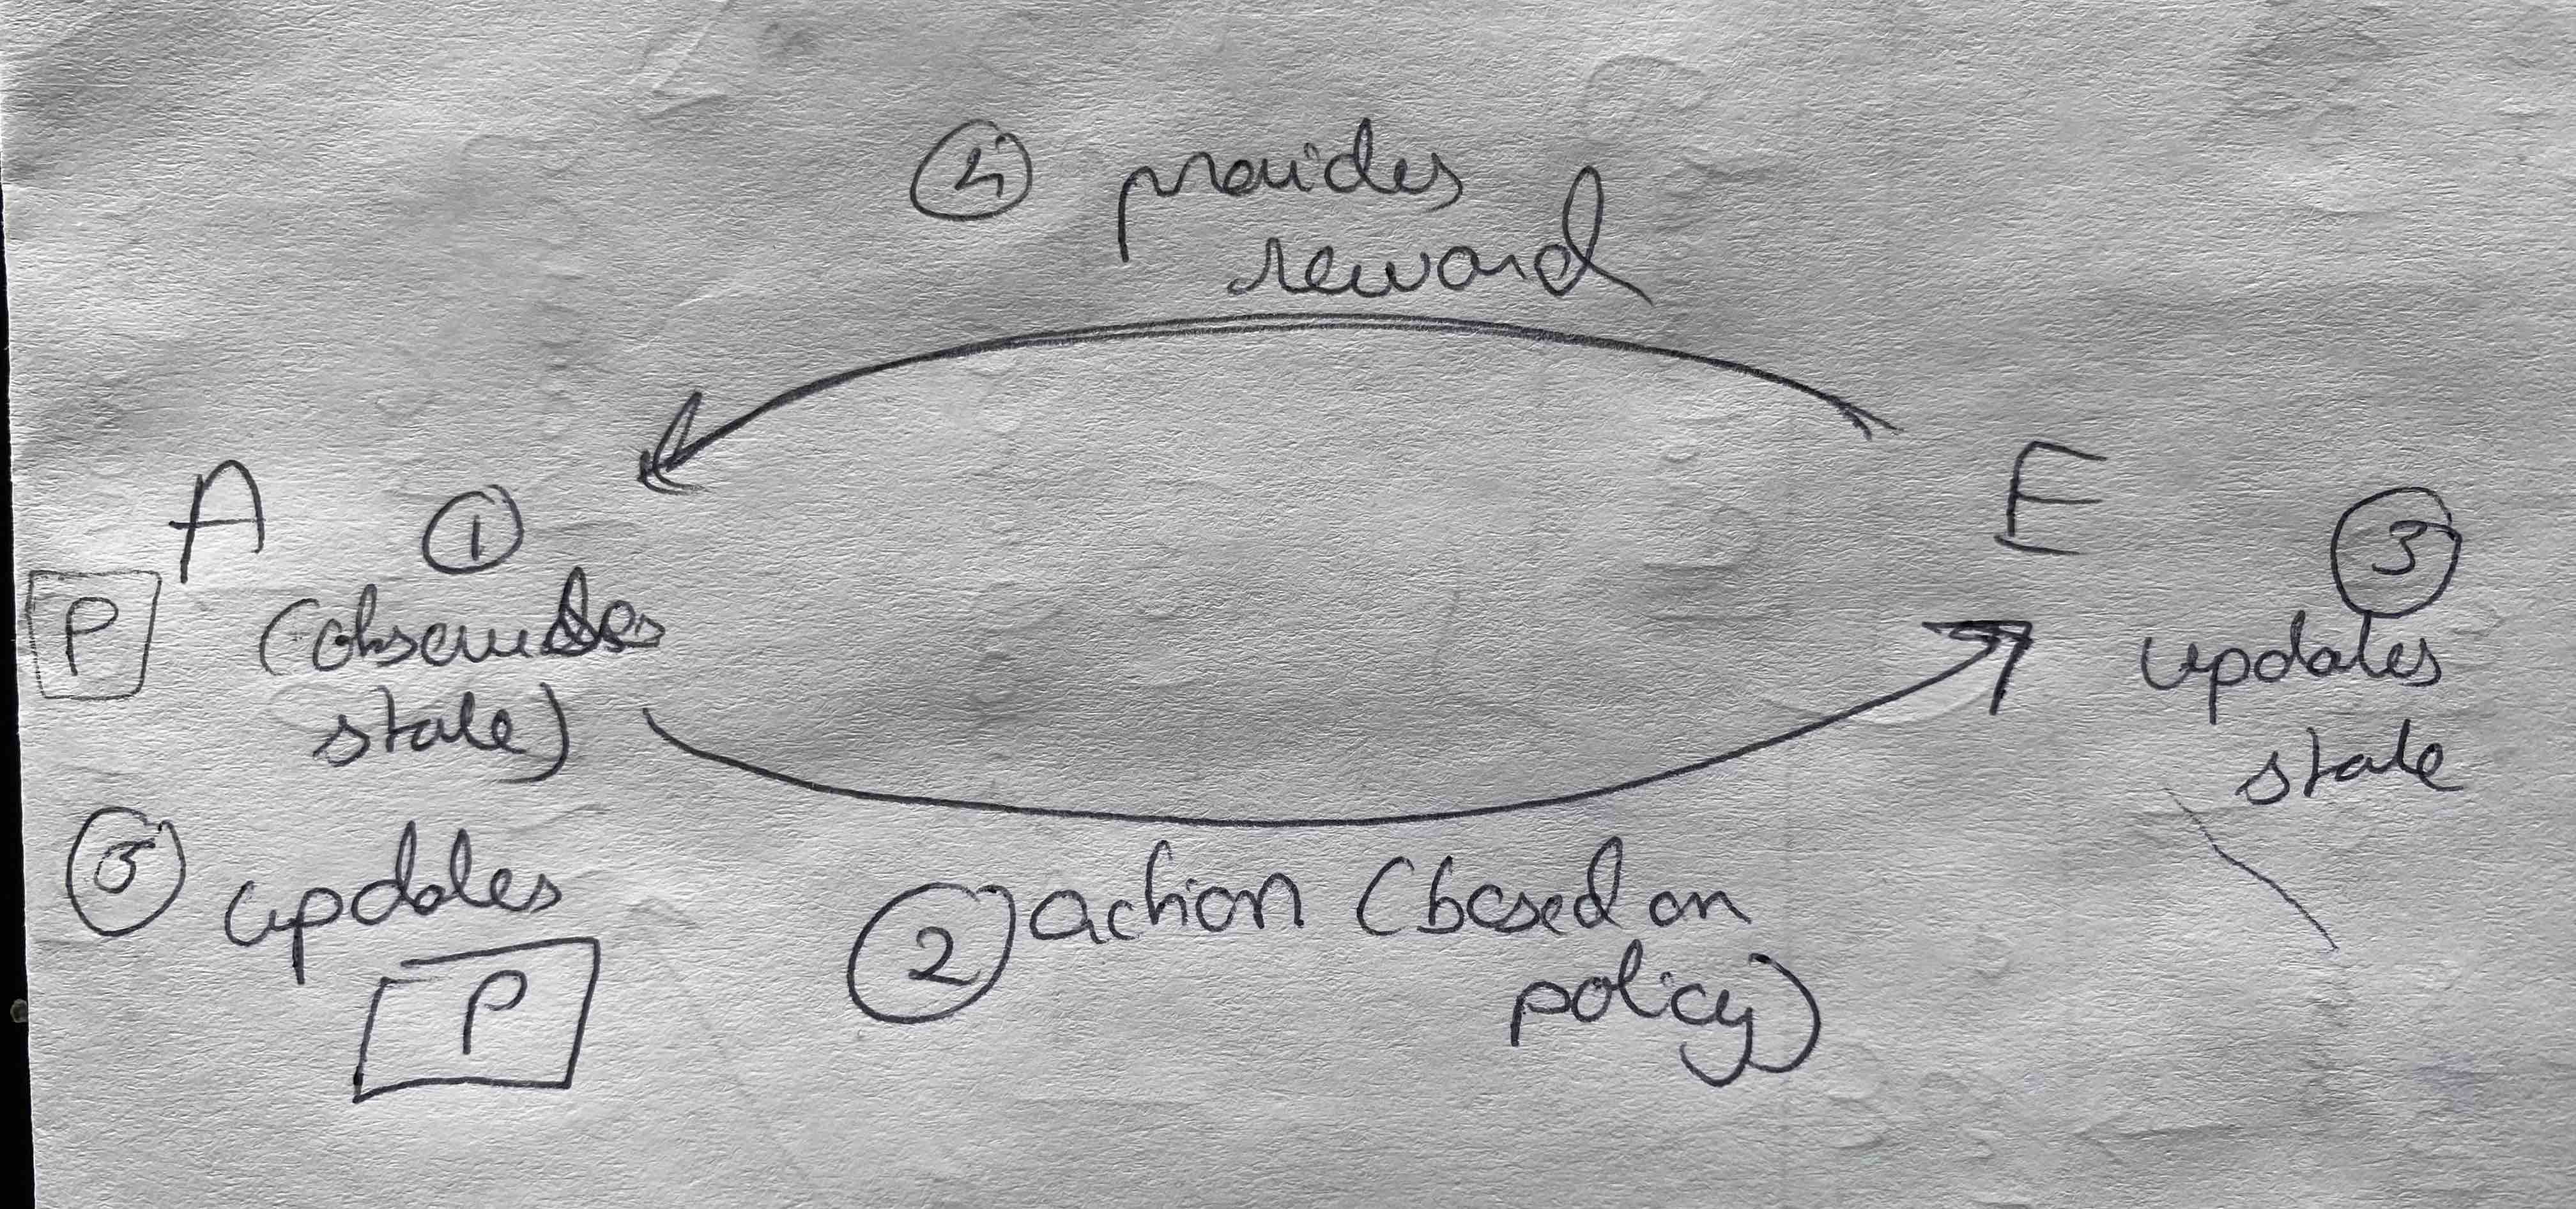 ④ provides
reward
A ①
E ③
P (observes
state)
updates
state
⑤ updates
P
② action (based on
policy)